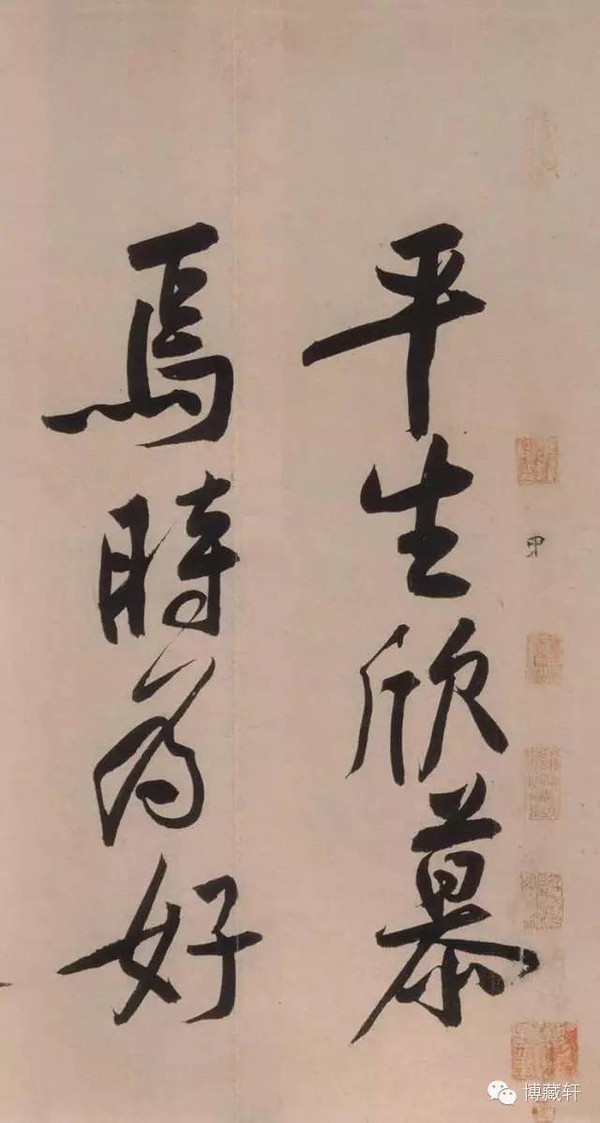 甲
平生欣慕
焉時為好
博藏轩